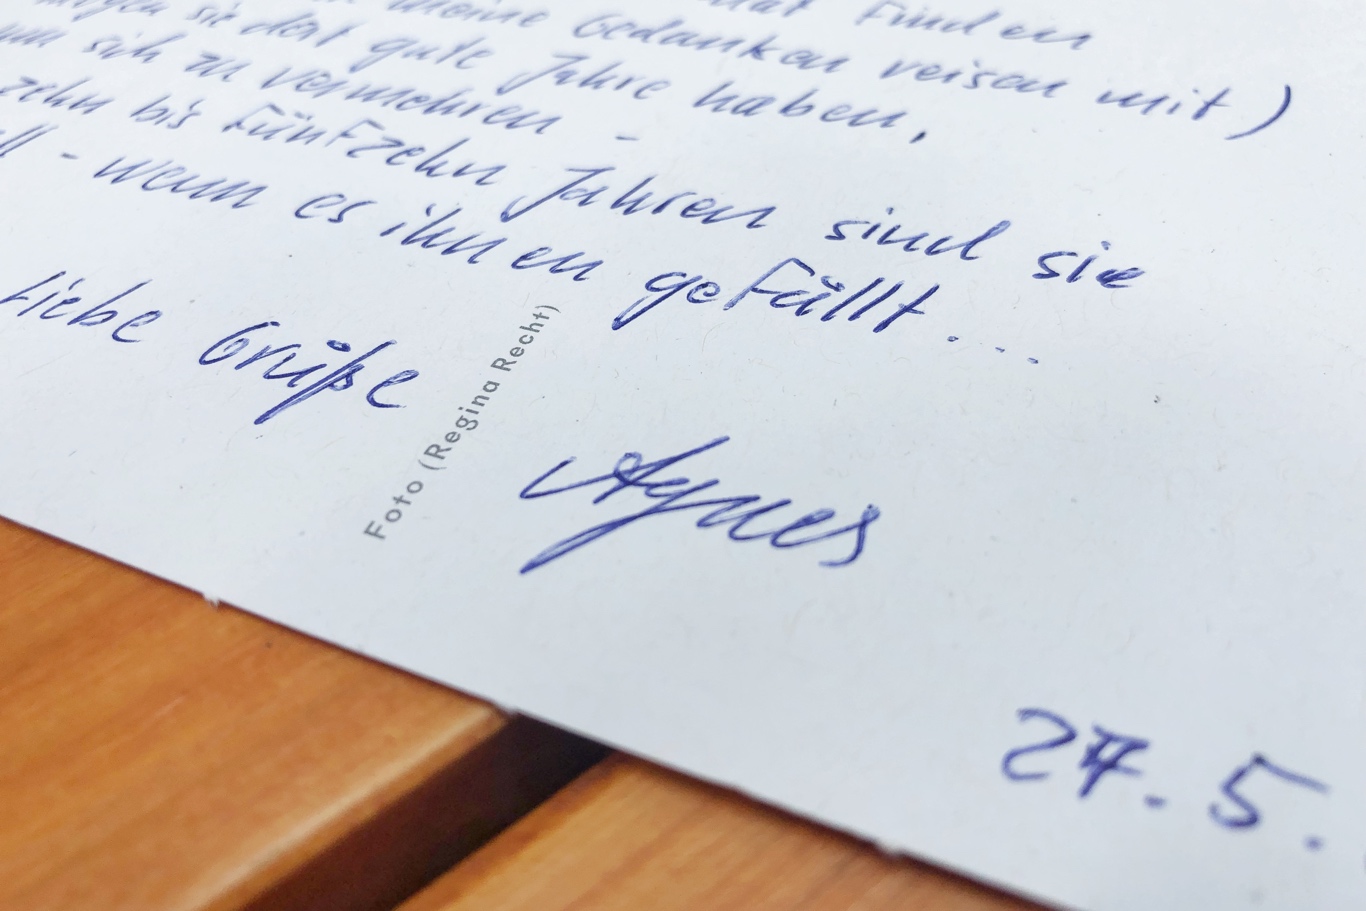 Finden
meine Gedanken reisen mit)
mögen sie dort gute Jahre haben,
um sich zu vermehren -
zehn bis fünfzehn Jahren sind sie
- wenn es ihnen gefällt....
Liebe Grüße
Foto (Regina Recht)
Agnes
27.5.